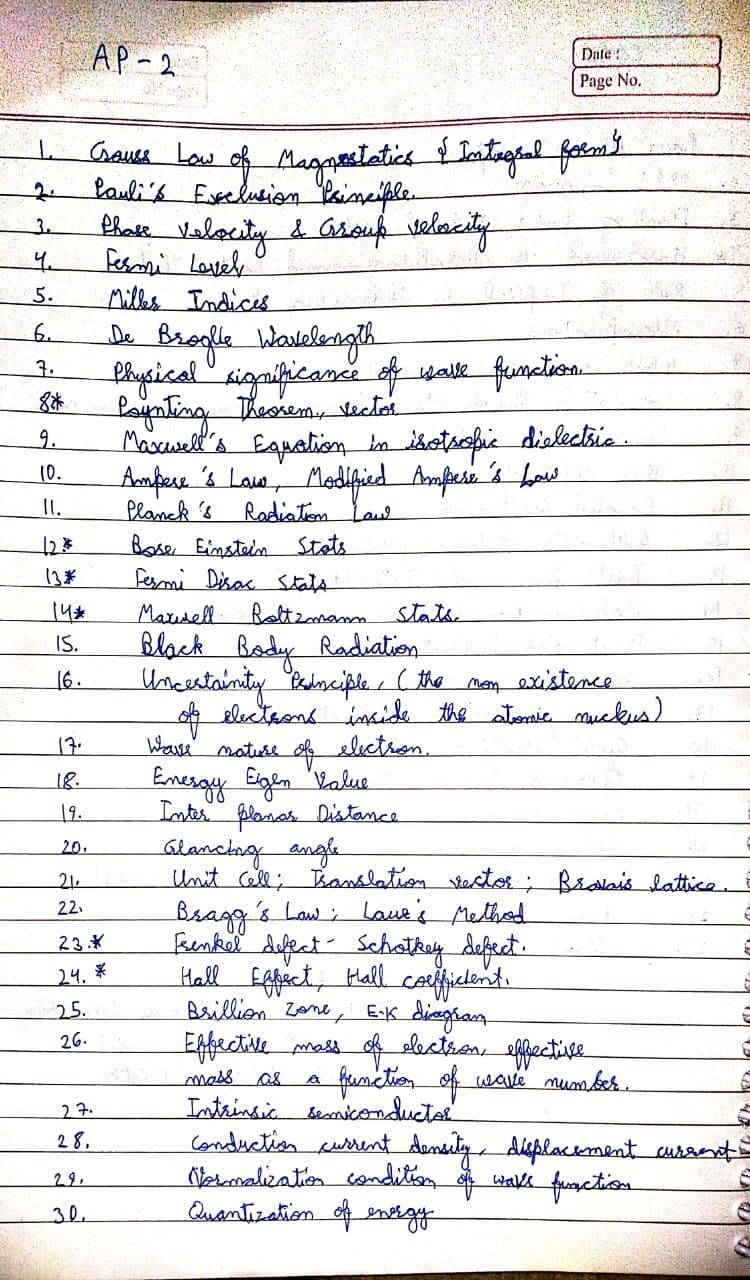 AP-2
Date :
Page No.
1. Gauss Law of Magnostatics { Integral form}
2. Pauli's Exclusion Principle.
3. Phase Velocity & Group velocity
4. Fermi Level
5. Miller Indices
6. De Broglie Wavelength
7. Physical significance of wave function.
8* Poynting Theorem, vector
9. Maxwell's Equation in isotropic dielectric.
10. Ampere's Law, Modified Ampere's Law
11. Planck's Radiation Law
12* Bose Einstein Stats
13* Fermi Dirac Stats
14* Maxwell Boltzmann Stats.
15. Black Body Radiation
16. Uncertainity Principle, (the non existence
of electrons inside the atomic nuckus)
17. Wave nature of electron.
18. Energy Eigen Value
19. Inter planar Distance
20. Glancing angle
21. Unit Cell; Translation vector; Bravais lattice.
22. Bragg's Law; Laue's Method
23.* Frenkel defect - Schotkey defect.
24.* Hall Effect, Hall coefficient.
25. Brillion Zone, E-K diagram
26. Effective mass of electron, effective
mass as a function of wave number.
27. Intrinsic semiconductor
28. Conduction current density, displacement current
29. Normalization condition of wave function
30. Quantization of energy